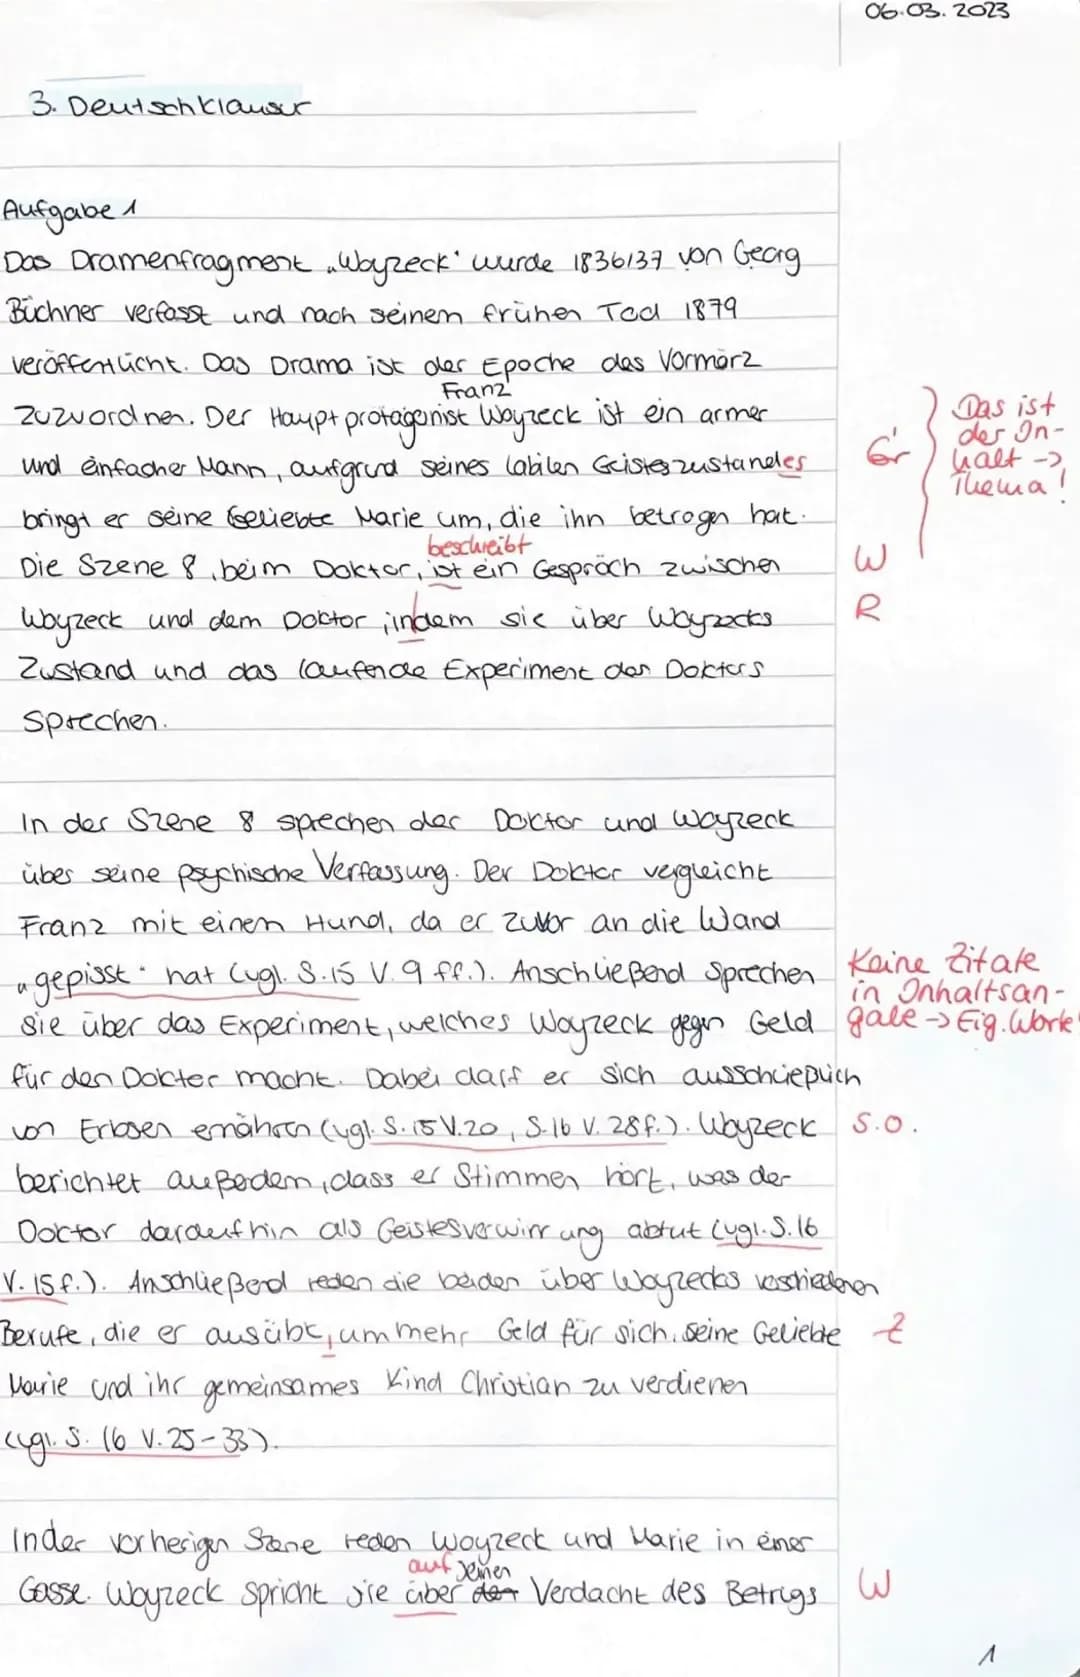 06.03.2023
3. Deutschklausur
Aufgabe 1
Das Dramenfragment „Woyzeck" wurde 1836/37 von Georg
Büchner verfasst und nach seinem frühen Tod 1879
veröffentlicht. Das Drama ist der Epoche des Vormärz
Franz
zuzuordnen. Der Hauptprotagonist Woyzeck ist ein armer
und einfacher Mann, aufgrund seines labilen Geisteszustandes
Gr
Das ist
der In-
halt ->
Thema!
bringt er seine Geliebte Marie um, die ihn betrogen hat.
beschreibt
Die Szene 8 „beim Doktor" ist ein Gespräch zwischen
W
Woyzeck und dem Doktor, indem sie über Woyzecks
R
Zustand und das laufende Experiment des Doktors
sprechen.
In der Szene 8 sprechen der Doktor und Woyzeck
über seine psychische Verfassung. Der Doktor vergleicht
Franz mit einem Hund, da er zuvor an die Wand
„gepisst" hat (vgl. S.15 V.9 ff.). Anschließend sprechen
Keine Zitate
in Inhaltsan-
gabe -> Eig. Worte
sie über das Experiment, welches Woyzeck gegen Geld
für den Doktor macht. Dabei darf er sich ausschließlich
von Erbsen ernähren (vgl. S.15 V.20, S.16 V.28f.). Woyzeck
S.O.
berichtet außerdem, dass er Stimmen hört, was der
Doktor daraufhin als Geistesverwirrung abtut (vgl. S.16
V.15f.). Anschließend reden die beiden über Woyzecks verschiedenen
Berufe, die er ausübt, um mehr Geld für sich, seine Geliebte
Z
Marie und ihr gemeinsames Kind Christian zu verdienen
(vgl. S. 16 V.25-33).
In der vorherigen Szene reden Woyzeck und Marie in einer
auf seinen
Gasse. Woyzeck spricht sie über den Verdacht des Betrugs
W
1